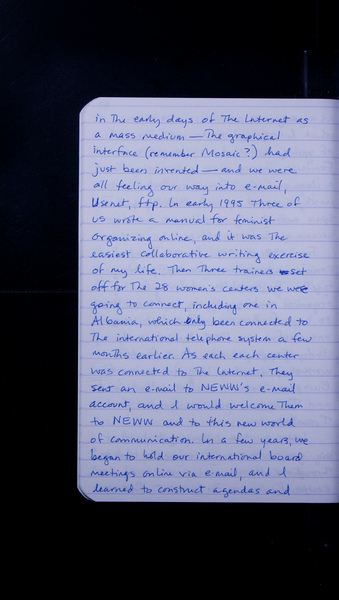 in the early days of the Internet as
a mass medium — the graphical
interface (remember Mosaic?) had
just been invented — and we were
all feeling our way into e-mail,
Usenet, ftp. In early 1995 three of
us wrote a manual for feminist
organizing online, and it was the
easiest collaborative writing exercise
of my life. Then three trainers set
off for the 28 women's centers we were
going to connect, including one in
Albania, which only been connected to
the international telephone system a few
months earlier. As each each center
was connected to the Internet, they
sent an e-mail to NEWW's e-mail
account, and I would welcome them
to NEWW and to this new world
of communication. In a few years, we
began to hold our international board
meetings online via e-mail, and I
learned to construct agendas and